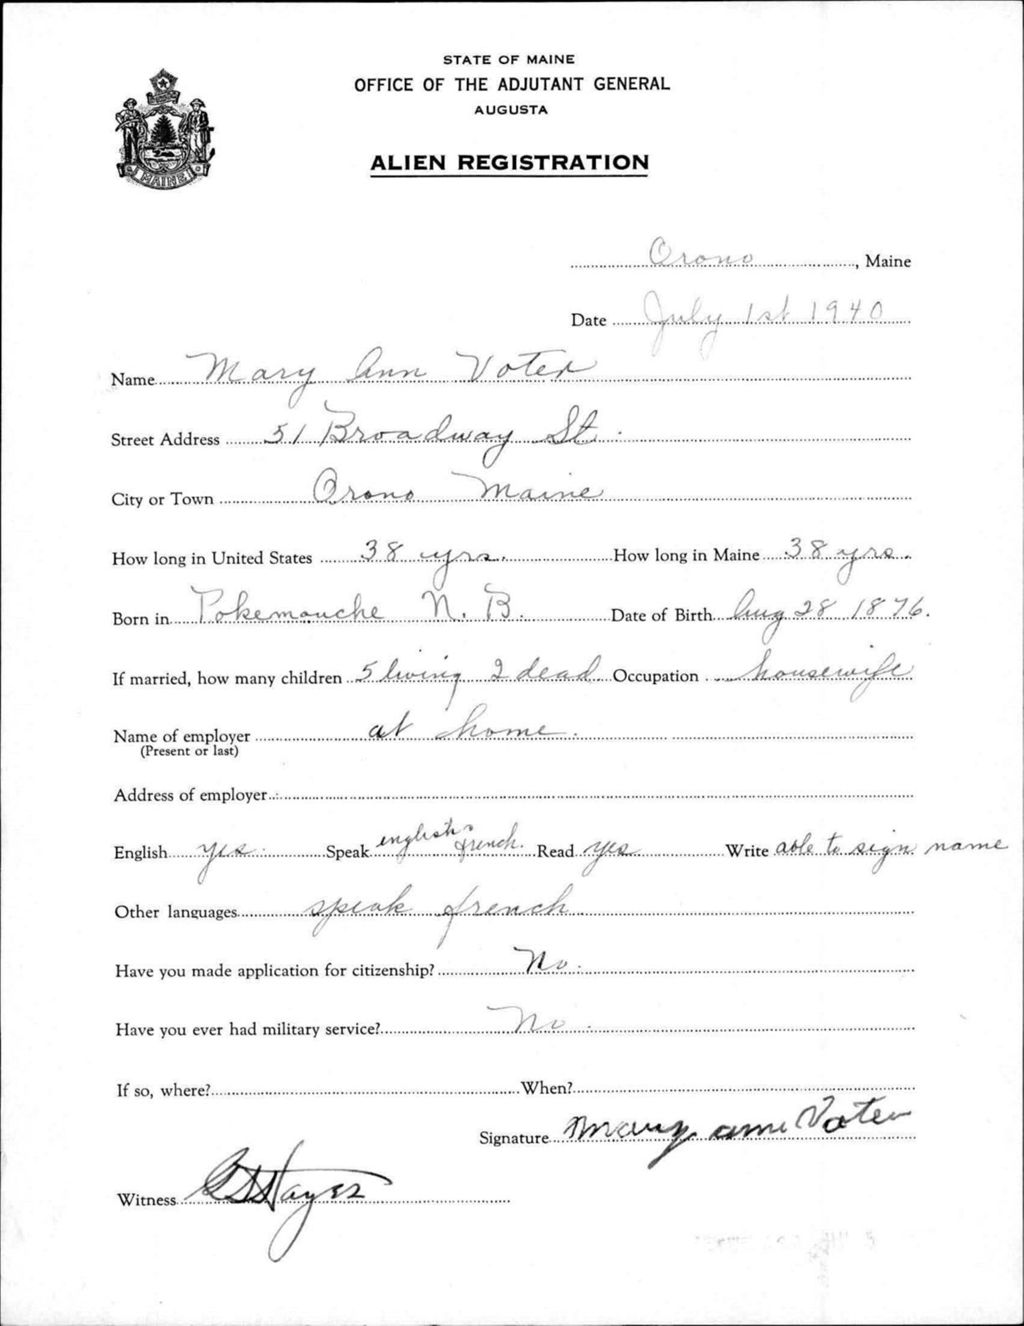 STATE OF MAINE
OFFICE OF THE ADJUTANT GENERAL
AUGUSTA
ALIEN REGISTRATION
MAINE
Orono, Maine
Date July 1st 1940
Name Mary Ann Voter
Street Address 51 Broadway St.
City or Town Orono Maine
How long in United States 38 yrs. How long in Maine 38 yrs.
Born in Pokemouche N. B. Date of Birth Aug 28 1876.
If married, how many children 5 living 2 dead Occupation housewife
Name of employer at home.
(Present or last)
Address of employer
English yes. Speak english french. Read yes Write able to sign name
Other languages speak french
Have you made application for citizenship? No.
Have you ever had military service? No.
If so, where? When?
Signature Mary ann Voter
Witness Hayes